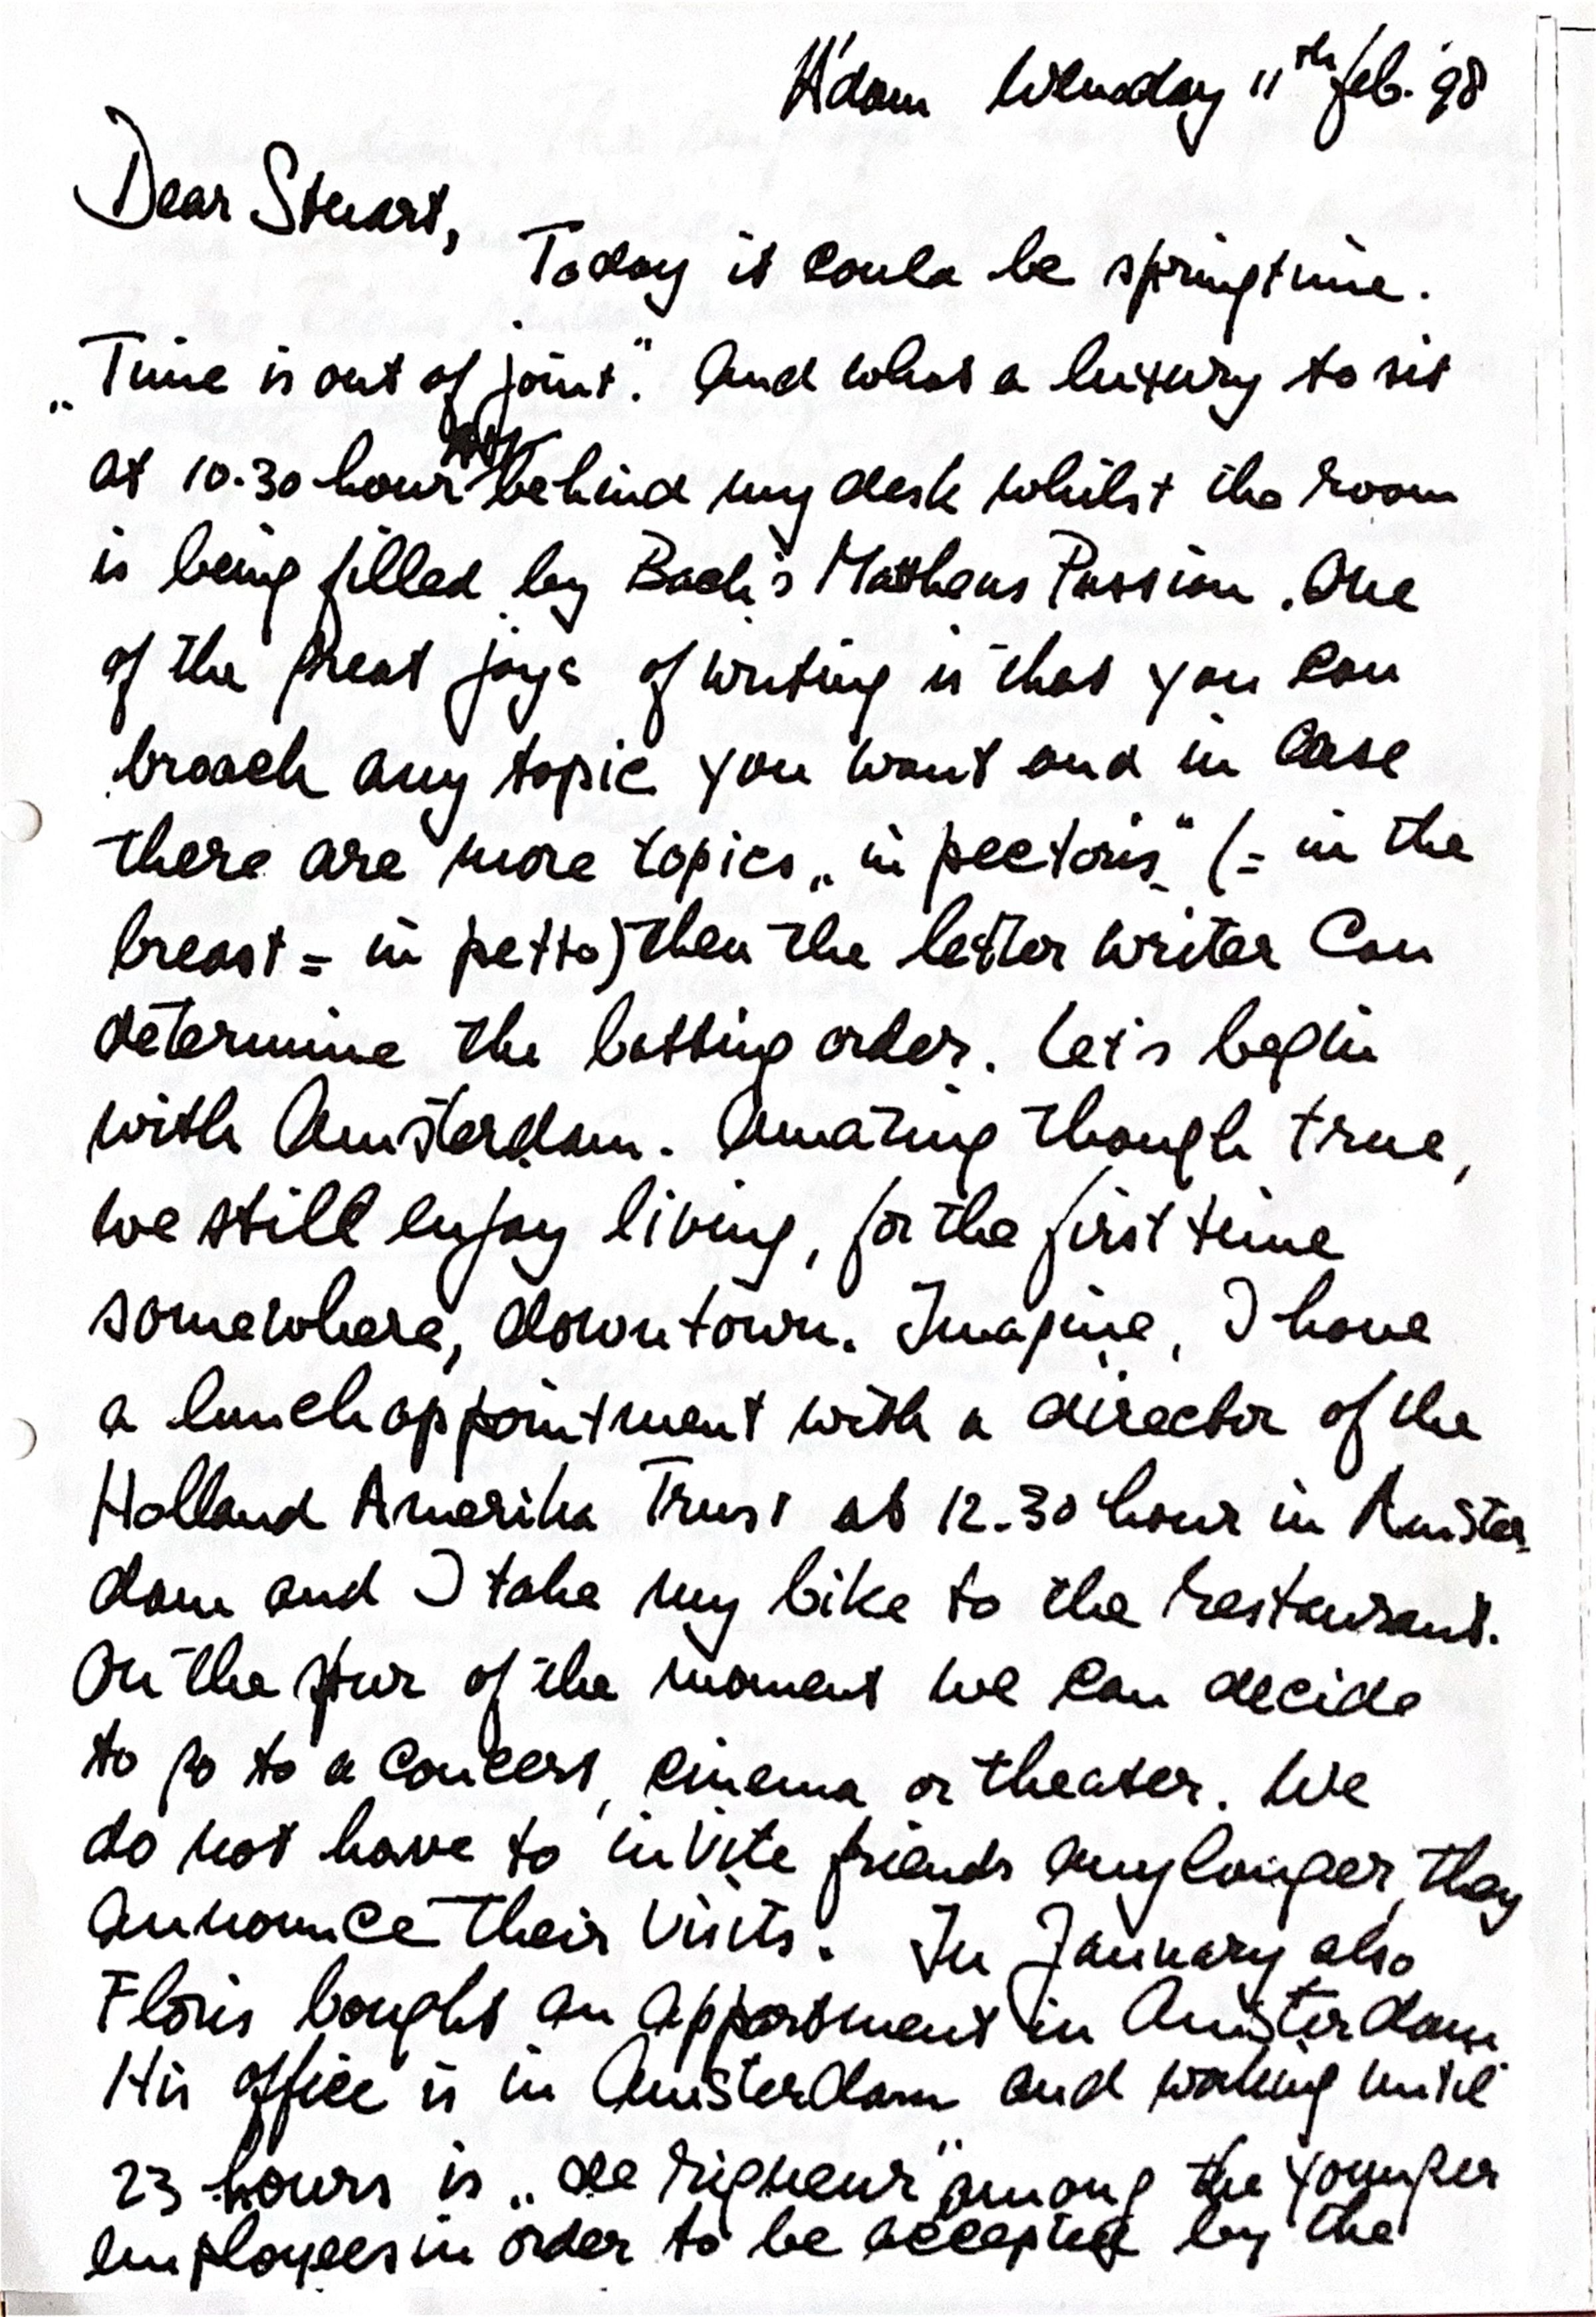 A'dam Wensday 11th feb. '98
Dear Stewart,
Today it could be springtime.
„Time is out of joint". And what a luxury to sit
at 10.30 hour behind my desk whilst the room
is being filled by Bach's Mattheus Passion. One
of the great joys of writing is that you can
broach any topic you want and in case
there are more topics „in pectoris" (= in the
breast = in petto) then the letter writer can
determine the batting order. Let's begin
with Amsterdam. Amazing though true,
we still enjoy living, for the first time
somewhere, downtown. Imagine, I have
a lunch appointment with a director of the
Holland Amerika Trust at 12.30 hour in Amster
dam and I take my bike to the restaurant.
On the spur of the moment we can decide
to go to a concert, cinema or theater. We
do not have to invite friends anylonger, they
announce their visits. In January also
Floris bought an appartment in Amsterdam
His office is in Amsterdam and working until
23 hours is „de rigueur" among the younger
employees in order to be accepted by the